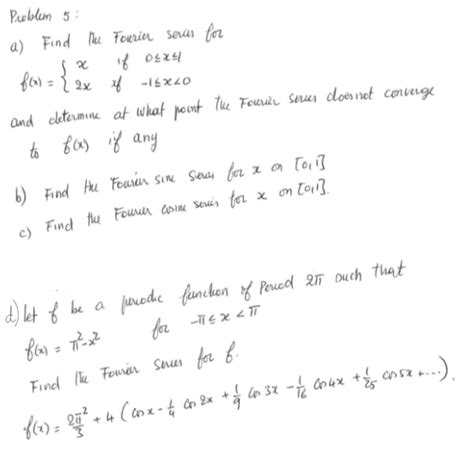 Problem 5 :
a) Find the Fourier series for
f(x) = { x if 0≤x≤1
2x if -1≤x<0
and determine at what point the Fourier series does not converge
to f(x) if any
b) Find the Fourier sine series for x on [0,1]
c) Find the Fourier cosine series for x on [0,1].
d) let f be a periodic function of Period 2π such that
f(x) = π²-x² for -π ≤ x < π
Find the Fourier series for f.
f(x) = 2π²/3 + 4 ( cos x - 1/4 cos 2x + 1/9 cos 3x - 1/16 cos 4x + 1/25 cos 5x + ... ).